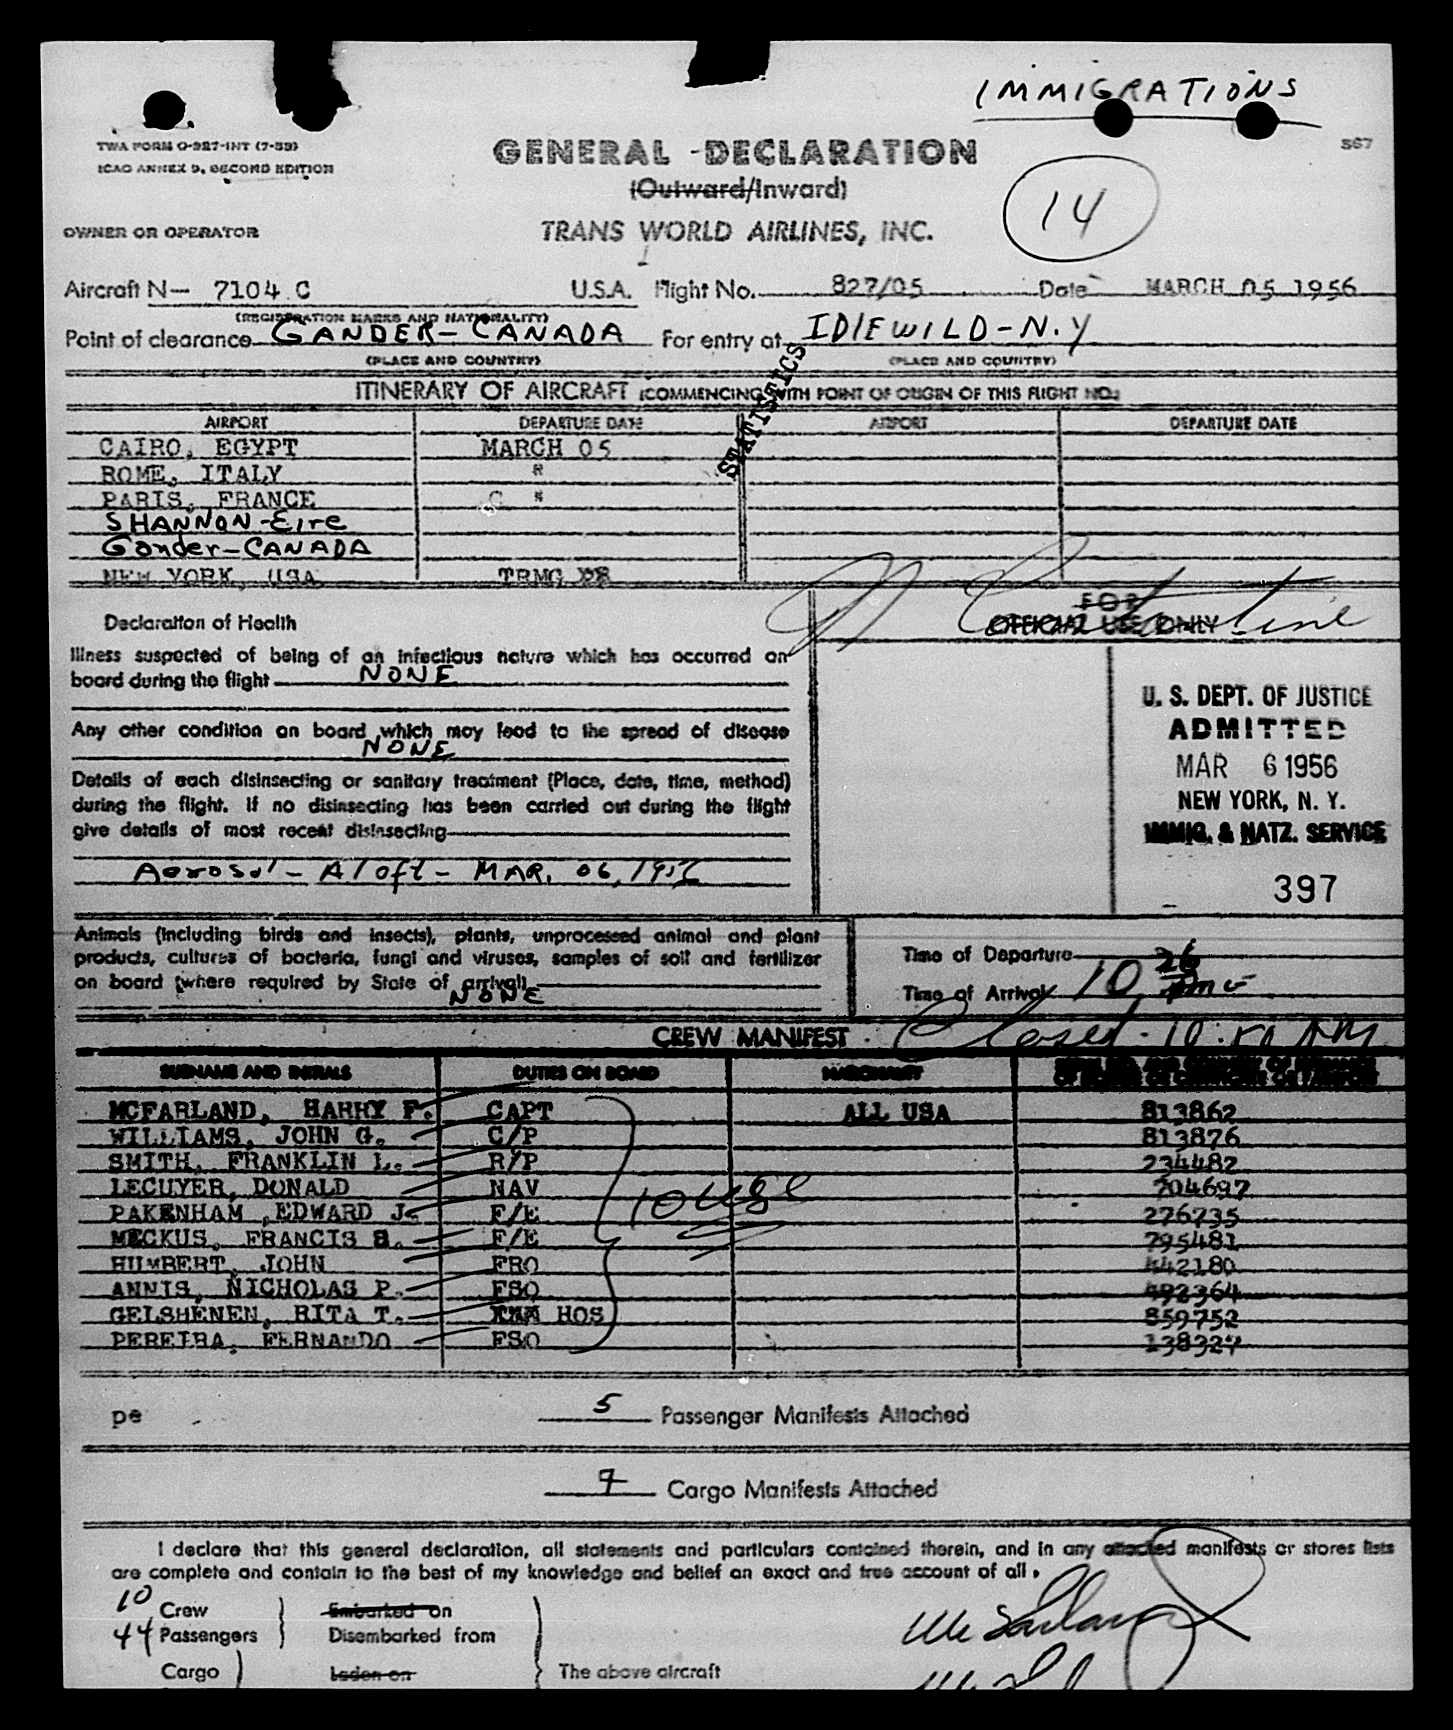 IMMIGRATIONS
TWA FORM O-927-INT (7-53)
ICAO ANNEX 9, SECOND EDITION
GENERAL DECLARATION
567
(Outward/Inward)
14
OWNER OR OPERATOR
TRANS WORLD AIRLINES, INC.
Aircraft N- 7104 C U.S.A. Flight No. 827/05 Date MARCH 05 1956
(REGISTRATION MARKS AND NATIONALITY)
Point of clearance GANDER-CANADA For entry at IDLEWILD-N.Y
(PLACE AND COUNTRY) (PLACE AND COUNTRY)
STATISTICS
ITINERARY OF AIRCRAFT (COMMENCING WITH POINT OF ORIGIN OF THIS FLIGHT NO.)
AIRPORT DEPARTURE DATE AIRPORT DEPARTURE DATE
CAIRO, EGYPT MARCH 05
ROME, ITALY "
PARIS, FRANCE "
SHANNON-Eire
Gander-CANADA
NEW YORK, USA TRMG
Declaration of Health
FOR
OFFICIAL USE ONLY
Illness suspected of being of an infectious nature which has occurred on
board during the flight NONE
Any other condition on board which may lead to the spread of disease
NONE
Details of each disinsecting or sanitary treatment (Place, date, time, method)
during the flight. If no disinsecting has been carried out during the flight
give details of most recent disinsecting
Aerosol - Aloft - MAR. 06, 1956
U. S. DEPT. OF JUSTICE
ADMITTED
MAR 6 1956
NEW YORK, N. Y.
IMMIG. & NATZ. SERVICE
397
Animals (including birds and insects), plants, unprocessed animal and plant
products, cultures of bacteria, fungi and viruses, samples of soil and fertilizer
on board (where required by State of arrival)
NONE
Time of Departure
Time of Arrival 10 26
CREW MANIFEST
Closed
SURNAME AND INITIALS DUTIES ON BOARD NATIONALITY
MCFARLAND, HARRY F. CAPT ALL USA 813862
WILLIAMS, JOHN G. C/P 813876
SMITH, FRANKLIN L. R/P 234482
LECUYER, DONALD NAV 704697
PAKENHAM ,EDWARD J. F/E 276735
MECKUS, FRANCIS S. F/E 795481
HUMBERT, JOHN FRO 442180
ANNIS, NICHOLAS P. FSO 492364
GELSHENEN, RITA T. HOS 859752
PEREIRA, FERNANDO FSO 138327
pe
5 Passenger Manifests Attached
9 Cargo Manifests Attached
I declare that this general declaration, all statements and particulars contained therein, and in any attached manifests or stores lists
are complete and contain to the best of my knowledge and belief an exact and true account of all.
10 Crew Embarked on
44 Passengers Disembarked from
Cargo Laden on The above aircraft